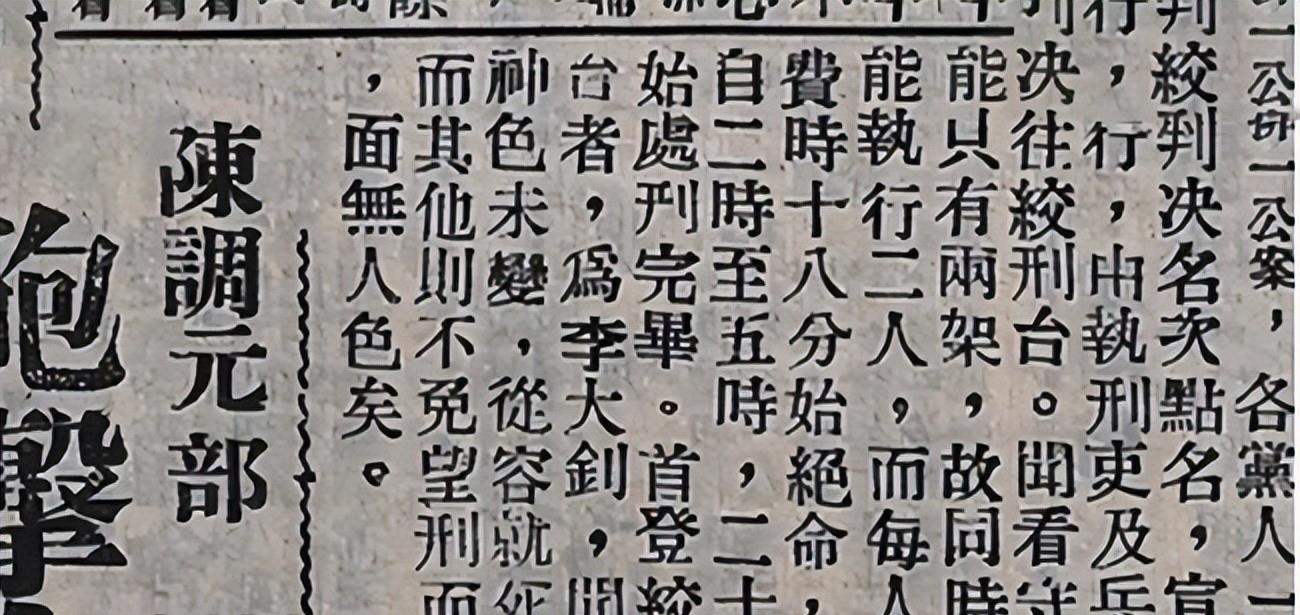 公案，各黨人一
絞判决名次點名，宣
行，行，由執刑吏及兵
决往絞刑台。聞看守
能只有兩架，故同時
能執行二人，而每人
費時十八分始絕命，
自二時至五時，二十
始處刑完畢。首登絞
台者，爲李大釗，聞
神色未變，從容就死
而其他則不免望刑而
，面無人色矣。
陳調元部
砲擊